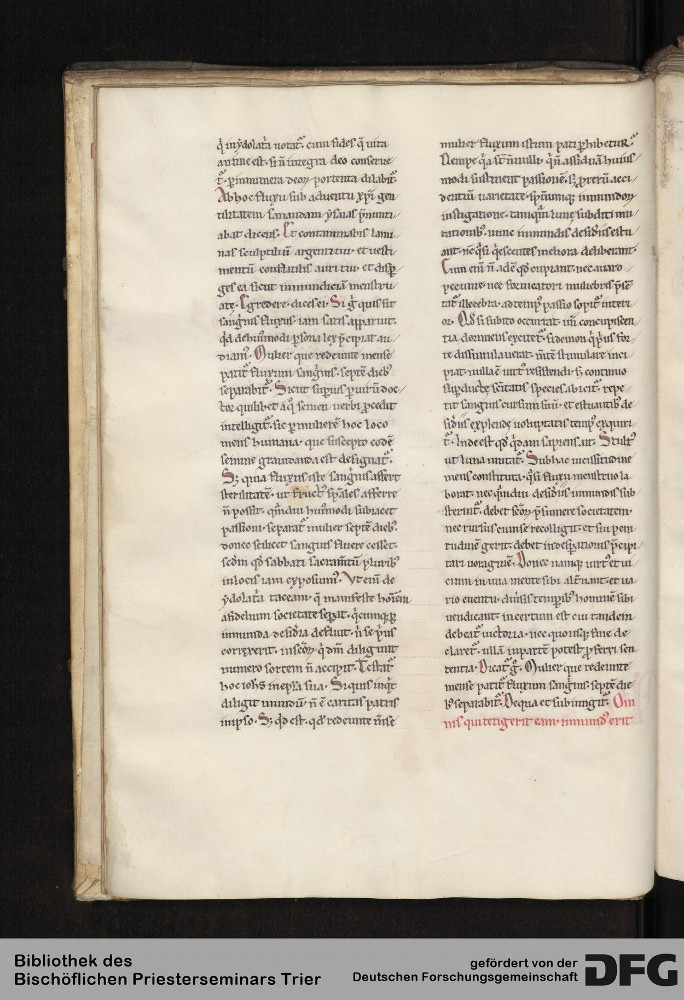 q̄ in ydolat̄a notat᷑. cum fides q̄ uita
anime est. si n̄ integra deo conserue
t᷑. p̱ innumera deoꝝ portenta dilabit᷑.
Ab hoc fluxu sub aduentu xp̄i gen
tilitatem sanandam ysaias p̄nunti
abat dicens. Et contaminabis lami
nas sculptiliū argenti tui. et uesti
mentū conflatilis auri tui. et disꝑ
ges ea sicut inmundiciā menstru
atę. Egredere. dices ei. Si g̊ quis sit
sanguis fluxus. iam satis apparuit.
Mulier que redeunte mense
patit᷑ fluxum sang̊nis. septē dieb᷒
separabit᷑. Sicut superius ꝑ uirū doc
tor quilibet a q̊ semen uerbi ꝓcedit
intelligit᷑. sic ꝑ mulierē hoc loco
mens humana. que suscepto eodē
semine grauidanda est designat᷑.
Sꝫ quia fluxus iste sang̊nis affert
sterilitatē. ut fruct᷒ sp̄ales afferre
n̄ possit. quādiu hui᷒modi subiacet
passioni. separat᷑ mulier septē dieb᷒.
donec scilicet sanguis fluere cesset.
scd̄m qd̄ sabbati sacram̄tū plurib᷒
in locis iam exposuim᷒. Vt enī de
ydolat̄a taceam. q̄ manifeste hoīem
a fidelium societate sepat. q̊cumqꝫ
inmunda desid̄ia defluit. n̄ se p̄us
correxerit. in seoꝝ q̊s dn̄s diligit
numero sortem n̄ accipit. Testat᷑
hoc ioh̄s in ep̄la sua. Si quis inq̊t
diligit mundū. n̄ ē caritas patris
in ipso. Sꝫ qd̄ est. qd̄ redeunte m̄se
mulier fluxum istum pati ꝑhibetur.
Nempe q̄a st̄ nōnulli. q̊ n̄ assiduā huius
modi sustinent passionē. sꝫ ꝓ rerū acci
dentiū uarietate. sp̄ituumqꝫ inmundoꝝ
instigatione. tamq̄m lunę subditi mu
tationib᷒. nunc inmundis desid̄iis estu
ant. nc̄ q̄si q̊escentes meliora deliberant.
Cum enī n̄ adē qd̄ cupiant. nec auaro
pecunie. nec fornicatori muliebris p̄se
tat᷑ illecebra. ad temp᷒ passio sopit᷑ interi
or. Qd̄ si subito occurrat. unde concupiscen
tia dormiens excitet᷑. si demon q̊ p̄us for
te dissimulauerat. m̄tē stimulare inci
piat. nullam uirt᷒ resistendi. sꝫ continuo
sup̱ductę sc̄itatis species abicit. repe
tit sanguis cursum suū. et estuantib᷒ de
sid̄iis explendę uoluptatis temp᷒ exquiri
t᷑. Inde est qd̄ q̊dam sapiens ait. Stult᷒
ut luna mutat᷑. Sub hac uicissitudine
mens constituta. q̄si fluxu menstruo la
borat. nec q̄mdiu desid̄iis inmundis sub
sternit᷑. debet seōꝝ p̄sumere societatem.
nec rursus cum se recolligit. et sui peni
tudinē gerit. debet in desꝑationis p̄cipi
tari uoraginē. Donec namqꝫ uirt᷒ et ui
cium in una mente sibi alt̄nant. et ua
rio euentu. diūsis temporib᷒ hominē sibi
uendicant. incertum est cui tandem
debeat᷑ uictoria. nec quousqꝫ fine de
claret᷑. ullā in partē potest ꝓferri sen
tentia. Dicat᷑ g̊. Mulier que redeunte
mense patit᷑ fluxum sang̊nis. septē die
b᷒ separabit᷑. De qua et subiungit᷑. Om
nis qui tetigerit eam. inmund᷒ erit
Bibliothek des
Bischöflichen Priesterseminars Trier
gefördert von der
Deutschen Forschungsgemeinschaft
DFG